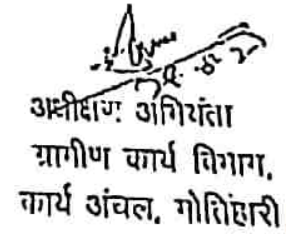 अधीक्षण अभियंता
ग्रामीण कार्य विभाग,
कार्य अंचल, मोतिहारी